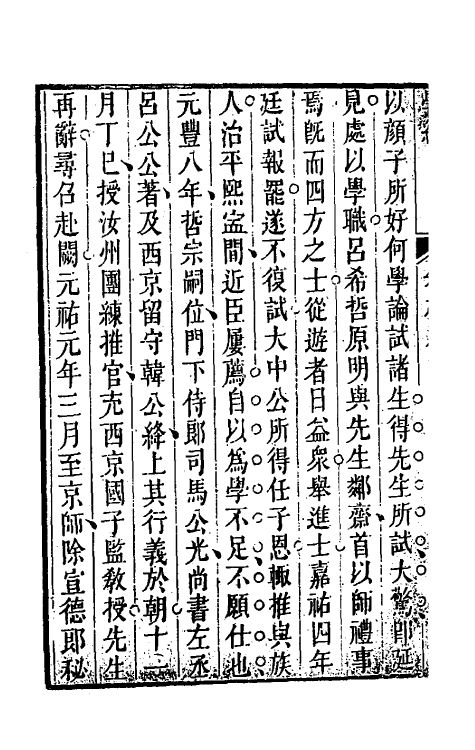 以顏子所好何學論試諸生得先生所試大驚即延
見處以學職呂希哲原明與先生鄰齋首以師禮事
焉旣而四方之士從遊者日益衆舉進士嘉祐四年
廷試報罷遂不復試大中公所得任子恩輒推與族
人治平熙寍間近臣屢薦自以爲學不足不願仕也
元豐八年哲宗嗣位門下侍郎司馬公光尚書左丞
呂公公著及西京留守韓公絳上其行義於朝十一
月丁巳授汝州團練推官充西京國子監敎授先生
再辭尋召赴闕元祐元年三月至京師除宣德郎秘